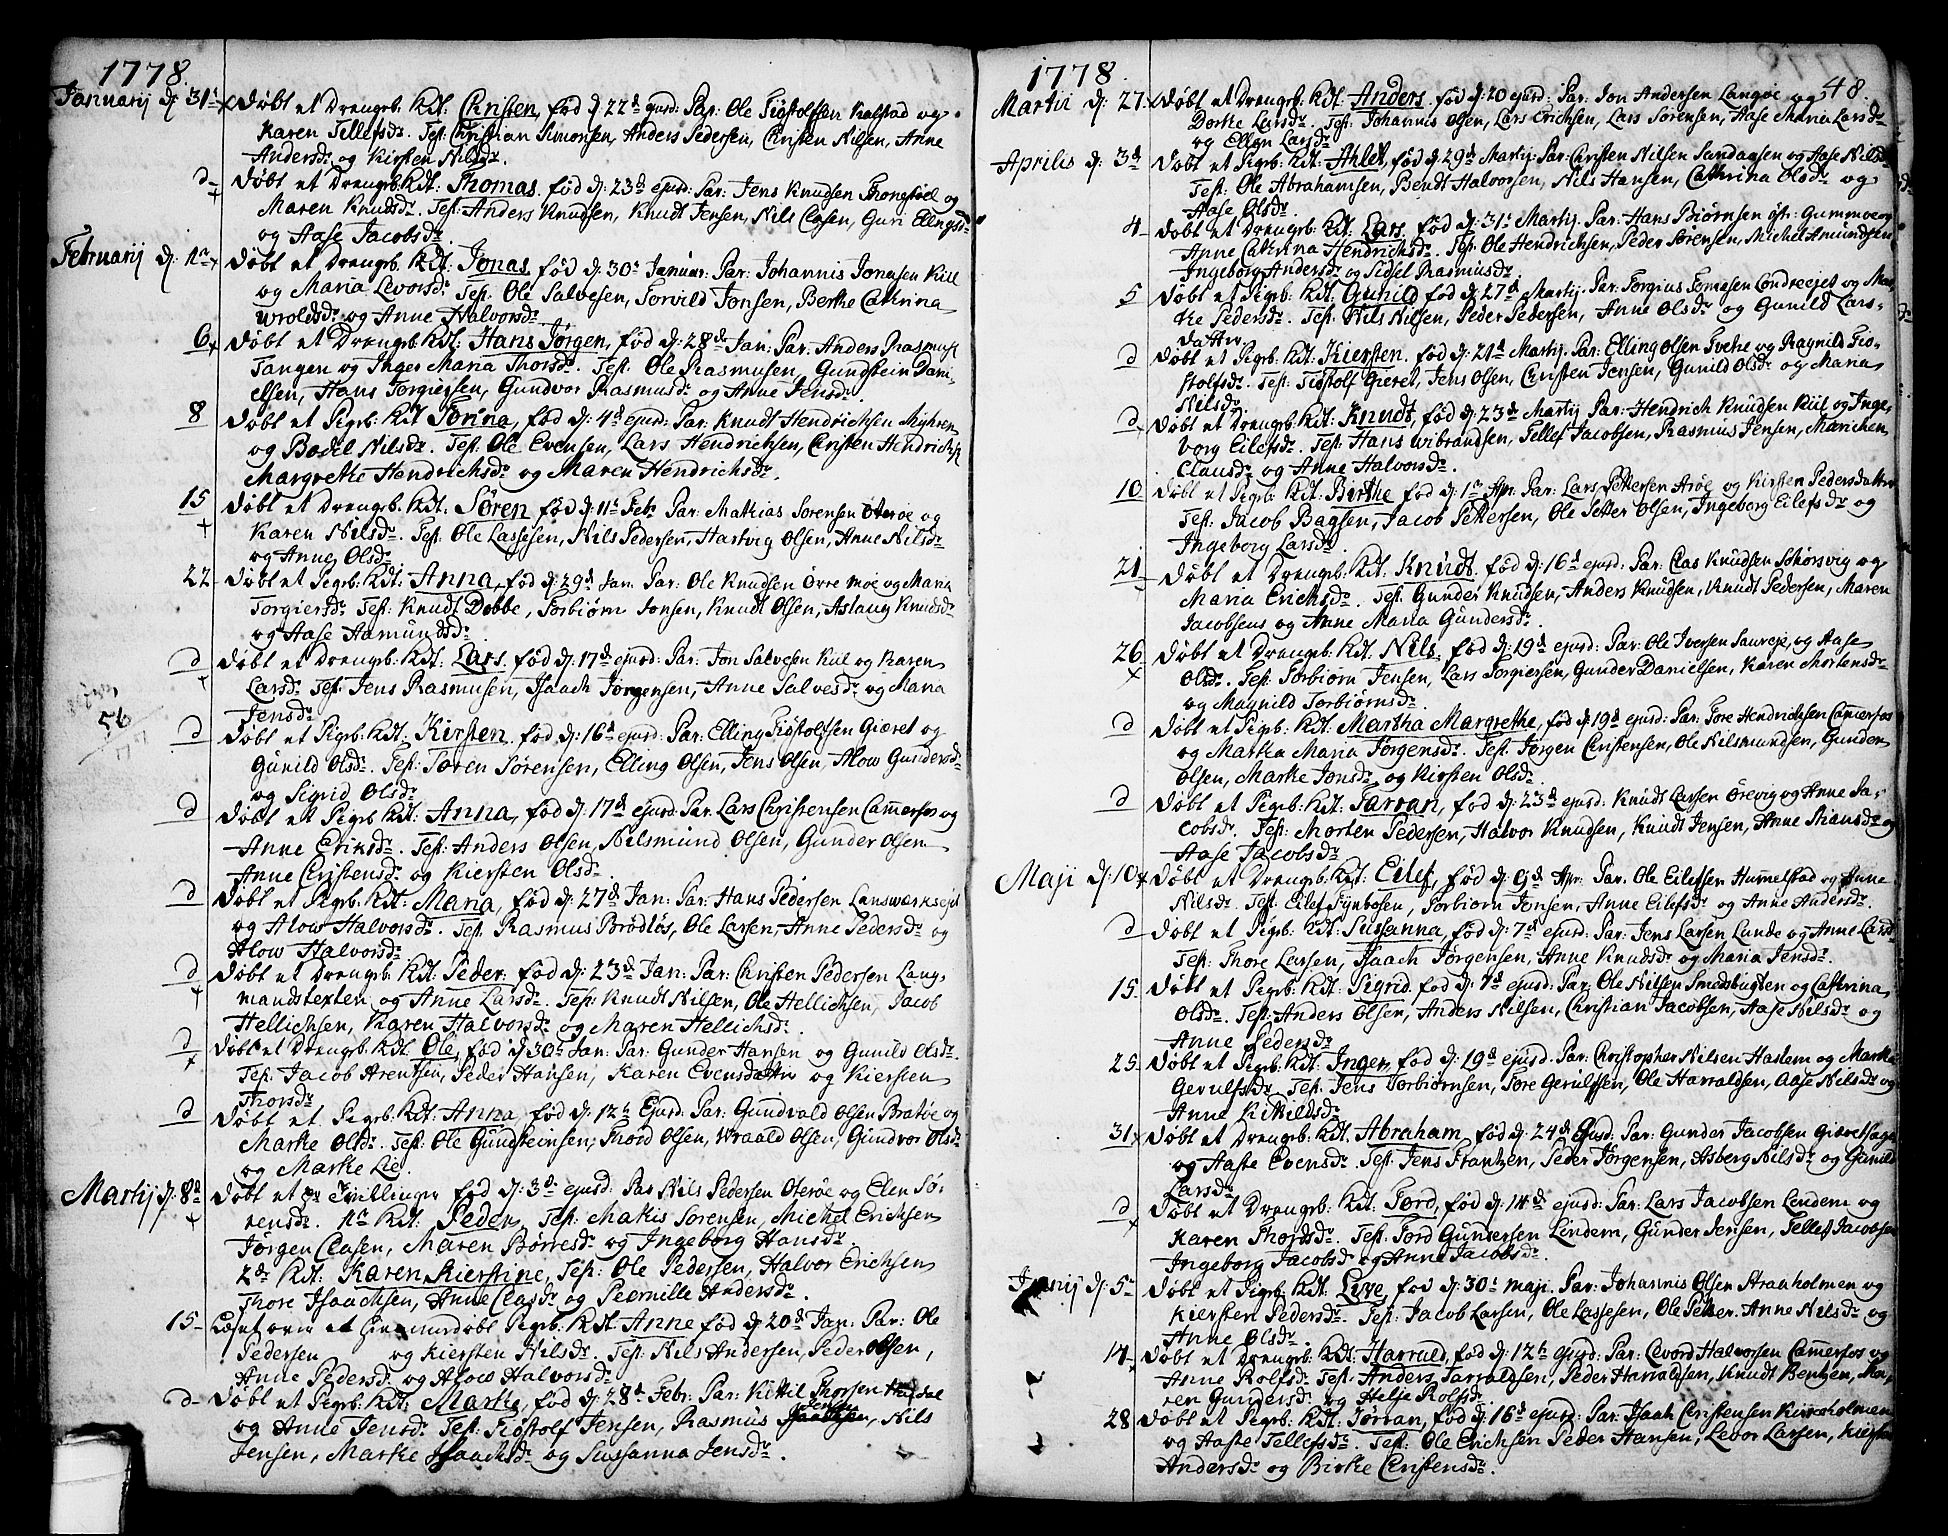 1778.
Januarij d: 31t Døbt et Drengeb. Kdt: Christen, fød d: 22d ejusd: Par: Ole Tiøstolfsen Kalstad og
Karen Tellefsdr. Test: Christian Simonsen, Anders Pedersen, Christen Nilsen, Anne
Andersdr og Kirsten Nilsdr.
d Døbt et Drengeb. Kdt: Thomas, fød d: 23d ejusd: Par: Jens Knudsen og
Maren Knudsdr. Test: Anders Knudsen, Knudt Jensen, Nils Clasen, Guri Ellingsdr
og Aase Jacobsdr.
Februarij d: 1n Døbt et Drengeb. Kdt: Jonas, fød d: 30t Januar: Par: Johannis Jonasen Kiil
og Maria Levorsdr. Test: Ole Salvesen, Torvild Jonsen, Berthe Cathrina
Wroldsdr og Anne Halvorsdr.
6 Døbt et Drengeb. Kdt: Hans Jørgen, fød d: 28de Jan: Par: Anders Rasmus:
Tangen og Inger Maria Thorsdr. Test: Ole Rasmusen, Gundstein Dani-
elsen, Hans Torgiersen, Gundvor Rasmusdr og Anne Jensdr.
8 Døbt et Pigeb: Kdt Torina, fød d: 4d ejusd: Par: Knudt Hendrichsen Myhren
og Bodel Nilsdr. Test: Ole Evensen, Lars Hendrichsen, Christen Hendrichs:
Margrethe Hendrichsdr og Maren Hendrichsdr.
15 Døbt et Drengeb. Kdt: Søren fød d: 11t Febr Par: Mathias Sørensen Oterøe og
Karen Nilsdr. Test: Ole Lassesen, Nils Pedersen, Hartvig Olsen, Anne Nilsdr
og Anne Olsdr.
22 Døbt et Pigeb: Kdt: Anna, fød d: 29d Jan: Par: Ole Knudsen Øvre Moe og Maria
Torgiersdr. Test: Knudt Dobbe, Torbiørn Jonsen, Knudt Olsen, Aslaug Knudsdr
og Aase Aamundsdr.
d Døbt et Drengeb. Kdt: Lars, fød d: 17d ejusd: Par: Jon Salvesen Kiil og Karen
Larsdr. Test: Jens Rasmusen, Isaach Jørgensen, Anne Salvesdr og Maria
Jensdr.
56
d Døbt et Pigeb. Kdt: Kirsten, fød d: 16d ejusd: Par: Elling Tiøstolfsen Giæret og
Gunild Olsdr. Test: Søren Sørensen, Elling Olsen, Jens Olsen, Alow Gundersdr
og Sigrid Olsdr.
d Døbt et Pigeb Kdt: Anna, fød d: 17d ejusd: Par: Lars Christensen Camerfos og
Anne Eriksdr. Test: Anders Olsen, Nilsmund Olsen, Gunder Olsen
Anne Christensdr og Kiersten Olsdr.
d Døbt et Pigeb. Kdt: Maria, fød d: 27d Jan: Par: Hans Pedersen Lanswerksejet
og Alow Halvorsdr. Test: Rasmus Brødløs, Ole Larsen, Anne Pedersdr og
Alow Halvorsdr.
d Døbt et Drengeb. Kdt: Peder, fød d: 23d Jan: Par: Christen Pedersen Lang-
mandstexten og Anne Larsdr. Test: Knudt Nilsen, Ole Hellichsen, Jacob
Hellichsen, Karen Halvorsdr og Maren Hellichsdr.
d Døbt et Drengeb. Kdt: Ole, fød d: 30t Jan: Par: Gunder Hansen og Gunild Olsdr.
Test: Jacob Arentsen, Peder Hansen, Karen Evensdatter og Kiersten
Thorsdr.
d Døbt et Pigeb. Kdt: Anna, fød d: 12t Ejusd: Par: Gundvald Olsen Bratøe og
Marthe Olsdr. Test: Ole Gundsteinsen, Thord Olsen, Wraald Olsen, Gundvor Olsdr
og Marthe Lie.
Martij d: 8d Døbt et pr Tvillinger fød d: 3d ejusd: Par: Nils Pedersen Oterøe og Elen Sø-
rensdr. 1n Kdt: Peder, Test: Mathis Sørensen, Michel Erichsen
Jørgen Clasen, Maren Børresdr og Ingeborg Hansdr.
2de Kdt: Karen Kierstine, Test: Ole Pedersen, Halvor Erichsen
Thore Isaachsen, Anne Clasdr og Peernille Andersdr.
15 Læst over et hiemmedøbt Pigeb: Kdt. Anne fød d: 20d Jan: Par: Ole
Pedersen og Kiersten Nilsdr. Test: Nils Andersen, Peder Olsen,
Anne Pedersdr og Alow Halvorsdr.
d Døbt et Pigeb. Kdt: Marthe, fød d: 28d Febr: Par: Kittil Thorsen
og Anne Jensdr. Test: Tiøstolf Jensen, Rasmus Jensen, Nils
Jensen, Marthe Isaachsdr og Sussanna Jensdr.
1778.
48.
Martii d: 27. Døbt et Drengeb. Kdt: Anders, fød d: 20 ejusd: Par: Jon Andersen Langøe og
Dorthe Larsdr. Test: Johannis Olsen, Lars Erichsen, Lars Sørensen, Aase Maria Larsdr
og Ellen Larsdr
Aprilis d: 3d Døbt et Pigeb. Kdt: Ahlet, fød d: 29d Martij: Par: Christen Nilsen Sundaasen og Aase Nilsdr
Test: Ole Abrahamsen, Bendt Halvorsen, Nils Hansen, Cathrina Olsdr og
Aase Olsdr.
4 Døbt et Drengeb. Kdt: Lars, fød d: 31t Martij. Par: Hans Biørnsen øfr: Gummoe og
Anne Cathrina Hendrichsdr. Test: Ole Hendrichsen, Peder Sørensen, Michel Amundsen
Ingeborg Andersdr og Sidsel Rasmusdr.
5 Døbt et Pigeb. Kdt: Gunild fød d: 27d Martij. Par: Torgius Tomesen Londreejet og Mar-
the Pedersdr. Test: Nils Nilsen, Peder Pedersen, Anne Olsdr og Gunild Lars-
datter.
d Døbt et Pigeb. Kdt: Kiersten, fød d: 21d Martij. Par: Elling Olsen Tvethe og Ragnild Tiø-
stolfsdr. Test: Tiøstolf Gieret, Jens Olsen, Christen Jensen, Gunild Olsdr og Maria
Nilsdr.
d Døbt et Drengeb. Kdt: Knudt, fød d: 23d Martij Par: Hendrich Knudsen Kiil og Inge-
borg Eilefsdr. Test: Hans Wibrandsen, Tellef Jacobsen, Rasmus Jensen, Marichen
Clausdr og Anne Halvorsdr.
10 Døbt et Pigeb Kdt: Birthe fød d: 1n Apr. Par: Lars Pettersen Arøe og Kirsten Pedersdatter
Test: Jacob Bagsen, Jacob Pettersen, Ole Petter Olsen, Ingeborg Eilefsdr og
Ingeborg Larsdr.
21 Døbt et Drengeb. Kdt: Knudt, fød d: 16d ejusd: Par: Clas Knudsen Schorsvig og
Maria Erichsdr. Test. Gunder Knudsen, Anders Knudsen, Knudt Pedersen, Maren
Jacobsens og Anne Maria Gundersdr.
26 Døbt et Drengeb. Kdt: Nils, fød d: 19d ejusd: Par: Ole Iversen Saureje, og Aase
Olsdr. Test: Torbiørn Jensen, Lars Torgiersen, Gunder Danielsen, Karen Mortensdr
og Magnild Torbiørnsdr.
d Døbt et Pigeb. Kdt: Martha Margrethe, fød d: 19d ejusd: Par: Tore Hendrichsen Camerfos
og Martha Maria Jørgensdr. Test: Jørgen Christensen, Ole Nilsmundsen, Gunder
Olsen, Marthe Jonsdr, og Kirsten Olsdr.
d Døbt et Pigeb. Kdt: Tarran, fød d: 23d ejusd: Knudt Larsen Ørevig og Anne Ja-
cobsdr. Test: Morten Pedersen, Halvor Knudsen, Knudt Jensen, Anne Mansdr og
Aase Jacobsdr.
Maji d: 10 Døbt et Drengeb. Kdt: Eilef, fød d: 9d Apr. Par. Ole Eilefsen Hummelstad og Anne
Nilsdr. Test: Eilef Fynbosen, Torbiørn Jonsen, Anne Eilefsdr og Anne Andersdr.
d Døbt et Pigeb. Kdt: Sussanna, fød d: 7d ejusd: Par: Jens Larsen Lunde og Anne Larsdr
Test: Thore Larsen, Isaach Jørgensen, Anne Knudsdr og Maria Jensdr.
15 Døbt et Pigeb. Kdt: Sigrid, fød d: 7d ejusd: Par: Ole Nilsen Smedsbugten og Cathrina
Olsdr. Test: Anders Olsen, Anders Nilsen, Christian Jacobsen, Aase Nilsdr og
Anne Pedersdr.
25 Døbt et Pigeb. Kdt: Inger, fød d: 19d ejusd. Par: Christopher Nilsen Haslem og Marthe
Gerulfsdr Test: Jens Torbiørnsen, Tore Gerulfsen, Ole Harraldsen, Aase Nilsdr og
Anne Kittildsdr.
31 Døbt et Drengeb. Kdt: Abraham, fød d: 24d Ejusd: Par: Gunder Jacobsen
og Aaste Evensdr. Test: Jens Frantzen, Peder Jørgensen, Asberg Nilsdr og Gunild
Larsdr.
d Døbt et Drengeb. Kdt: Tord, fød d: 14d ejusd: Par: Lars Jacobsen Lendem og
Karen Thordsdr. Test: Tord Gundersen Lindem, Gunder Jensen, Tellef Jacobsen
Ingeborg Jacobsdr og Anne Jacobsdr.
Junij d: 5 Døbt et Pigeb. Kdt: Live, fød d: 30t Maji. Par: Johannis Olsen Straaholmen og
Kiersten Pedersdr. Test: Jacob Larsen, Ole Lassesen, Ole Petter, Anne Nilsdr og
Anne Olsdr.
14 Døbt et Drengeb. Kdt: Harrald, fød d: 12t Ejusd: Par: Levord Halvorsen Camerfos og
Anne Rolfsdr. Test: Anders Harraldsen, Peder Harraldsen, Knudt Bentzen, Ma-
ren Gundersdr og Helje Rolfsdr.
28 Døbt et Pigeb. Kdt: Tørran, fød d: 16d ejusd: Par: Isaah Christensen Kirkeholmen
og Aaste Tellefsdr. Test: Ole Erichsen Peder Hansen, Levor Larsen, Kiersten
Andersdr og Birthe Christensdr.